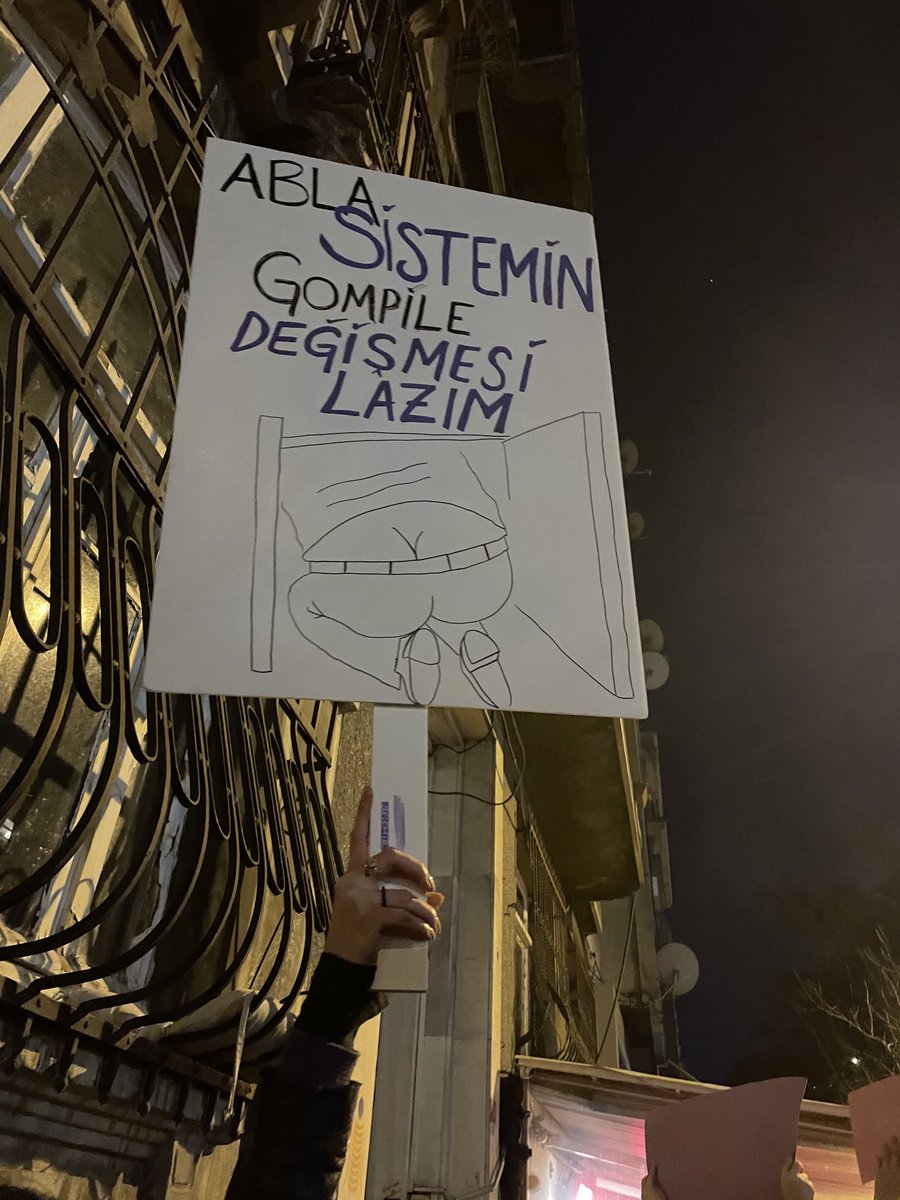 ABLA
SİSTEMİN
GOMPİLE
DEĞİŞMESİ
LAZIM